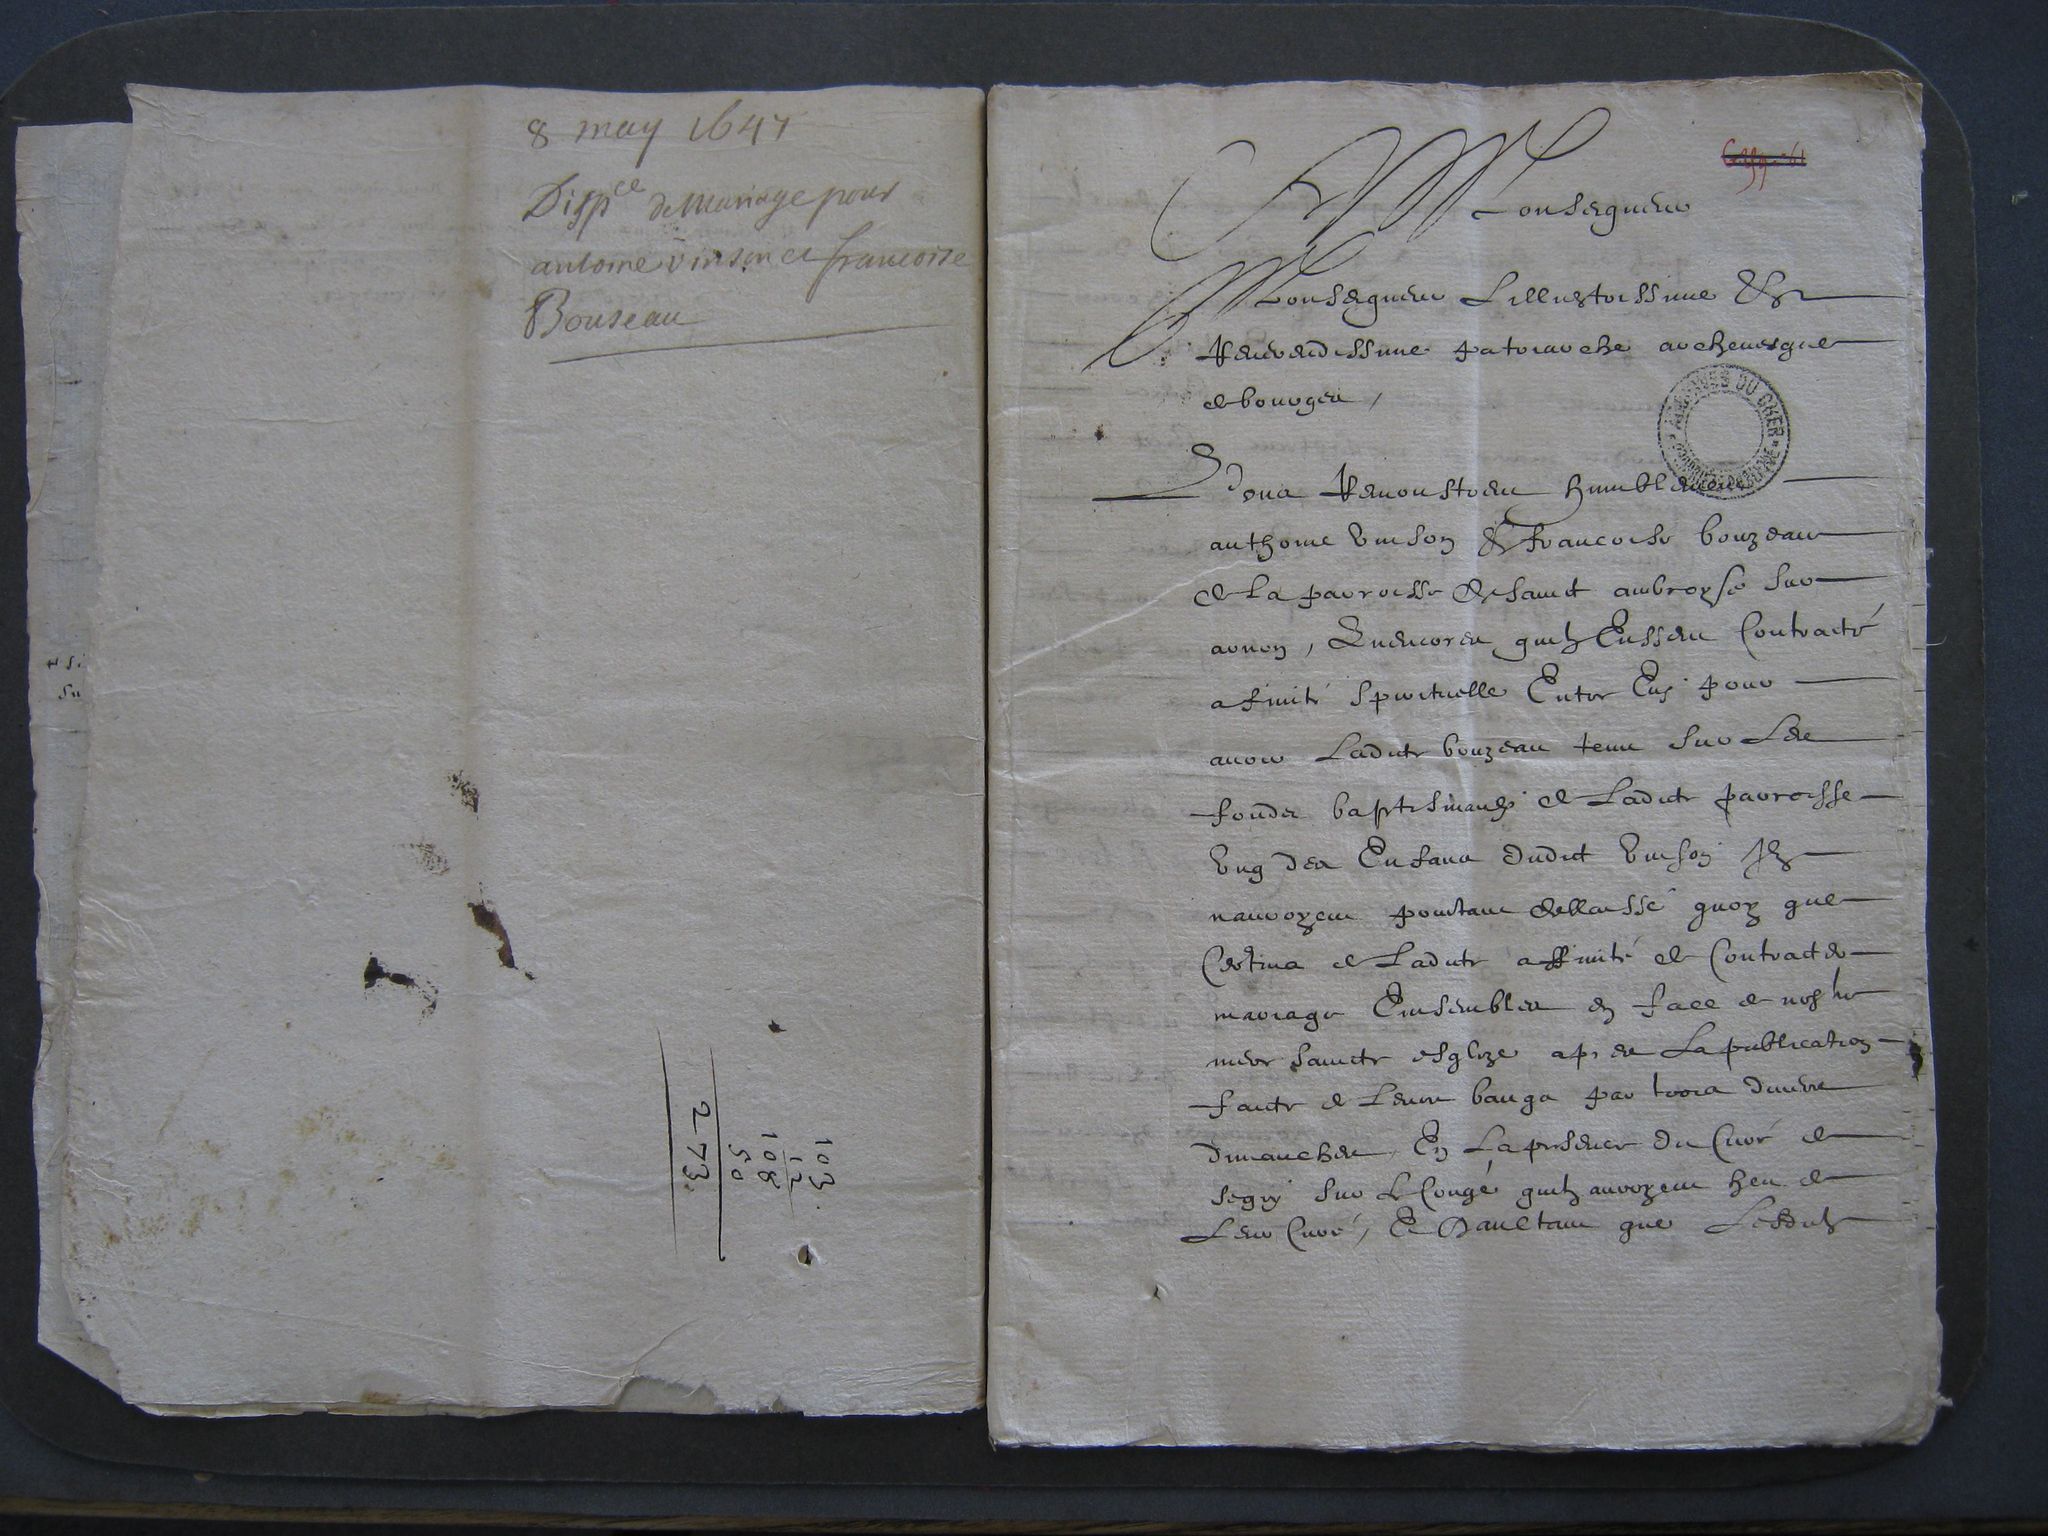 8 may 1647
Dispce de Mariage pour
antoine vinson et francoise
Bouseau
103
12
108
50
273
Monseigneur
Monseigneur Lillustrissime Et
Reverendissime patriarche archevesque
de bourges,
ARCHIVES DU CHER
Vous Remonstrent humblement
anthoine vinson Et francoise bouzeau
de la parroisse de sainct ambroyse sur
arnon, Quencores quilz Eussent Contracté
afinité spirituelle Entre Eux pour
avoir ladicte bouzeau tenu sur Les
fonds baptismaux de Ladicte parroisse
Ung des Enfans dudict vinson Ilz
nauroyent pourtant delaissé quoy que
Certins de Ladicte affinité de Contracter
mariage Ensembles en face de nostre
mere saincte esglize apres La publication
faicte de Leurs bangs par trois divers
dimanches En La presence du Curé de
segry sur Le Congé quilz auroyent heu de
Leur Curé, Et Daultant que Lesdictz